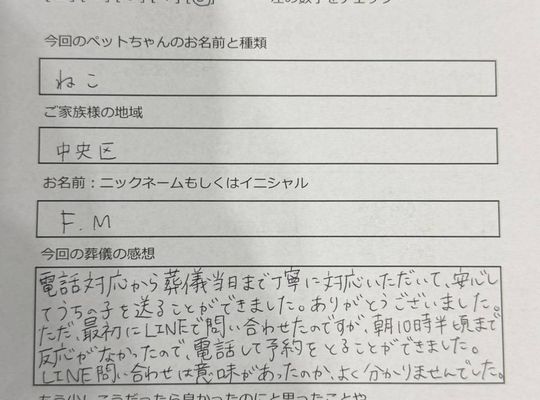 今回のペットちゃんのお名前と種類
ねこ
ご家族様の地域
中央区
お名前：ニックネームもしくはイニシャル
F.M
今回の葬儀の感想
電話対応から葬儀当日まで丁寧に対応いただいて、安心し
てうちの子を送ることができました。ありがとうございました。
ただ、最初にLINEで問い合わせたのですが、朝10時半頃まで
反応がなかったので、電話して予約をとることができました。
LINE問い合わせは意味があったのか、よく分かりませんでした。
もう少しこうだったら良かったのにと思ったことや